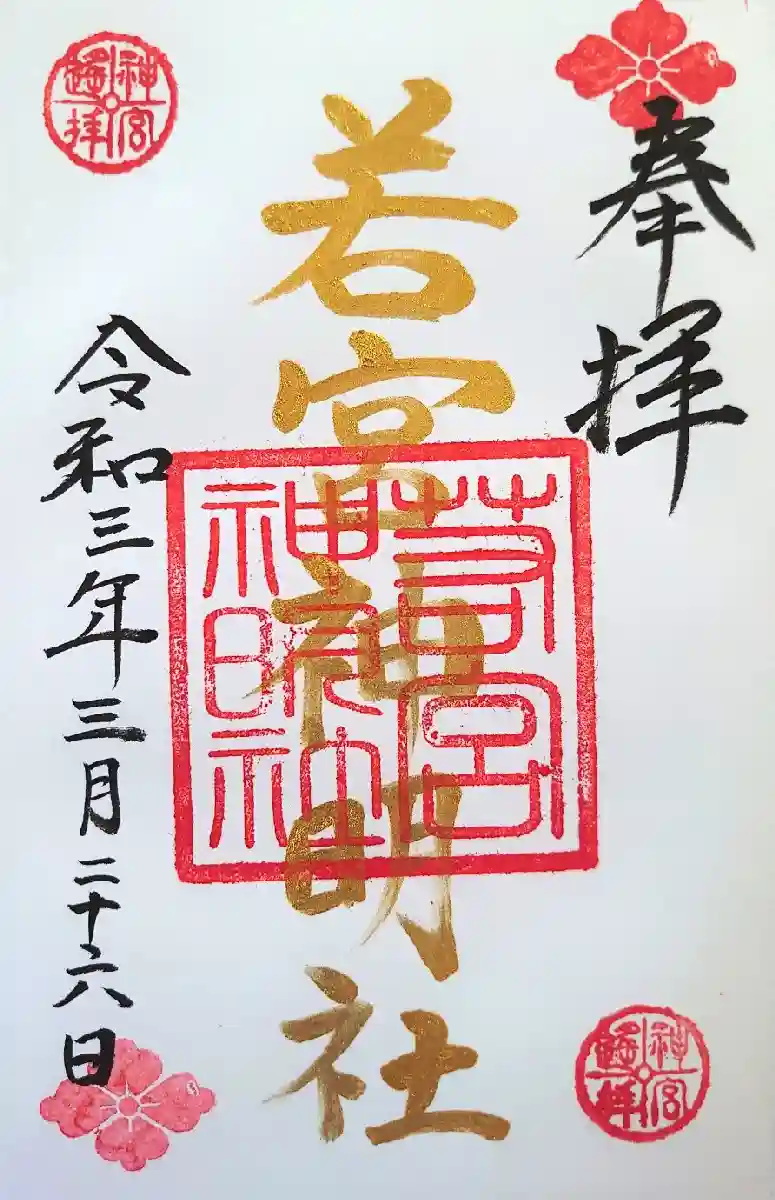 奉拝
若宮神明社
若宮
神明社
令和三年三月二十六日
神宮
遥拝
神宮
遥拝